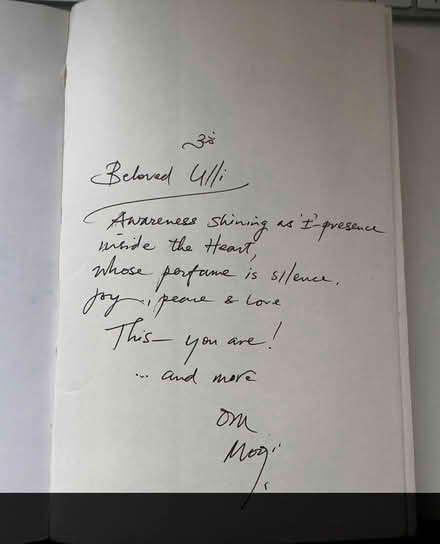 ॐ
Beloved Ulli
Awareness shining as 'I'-presence
inside the Heart,
whose perfume is silence,
joy, peace & love
This — you are!
... and more
om
Mooji